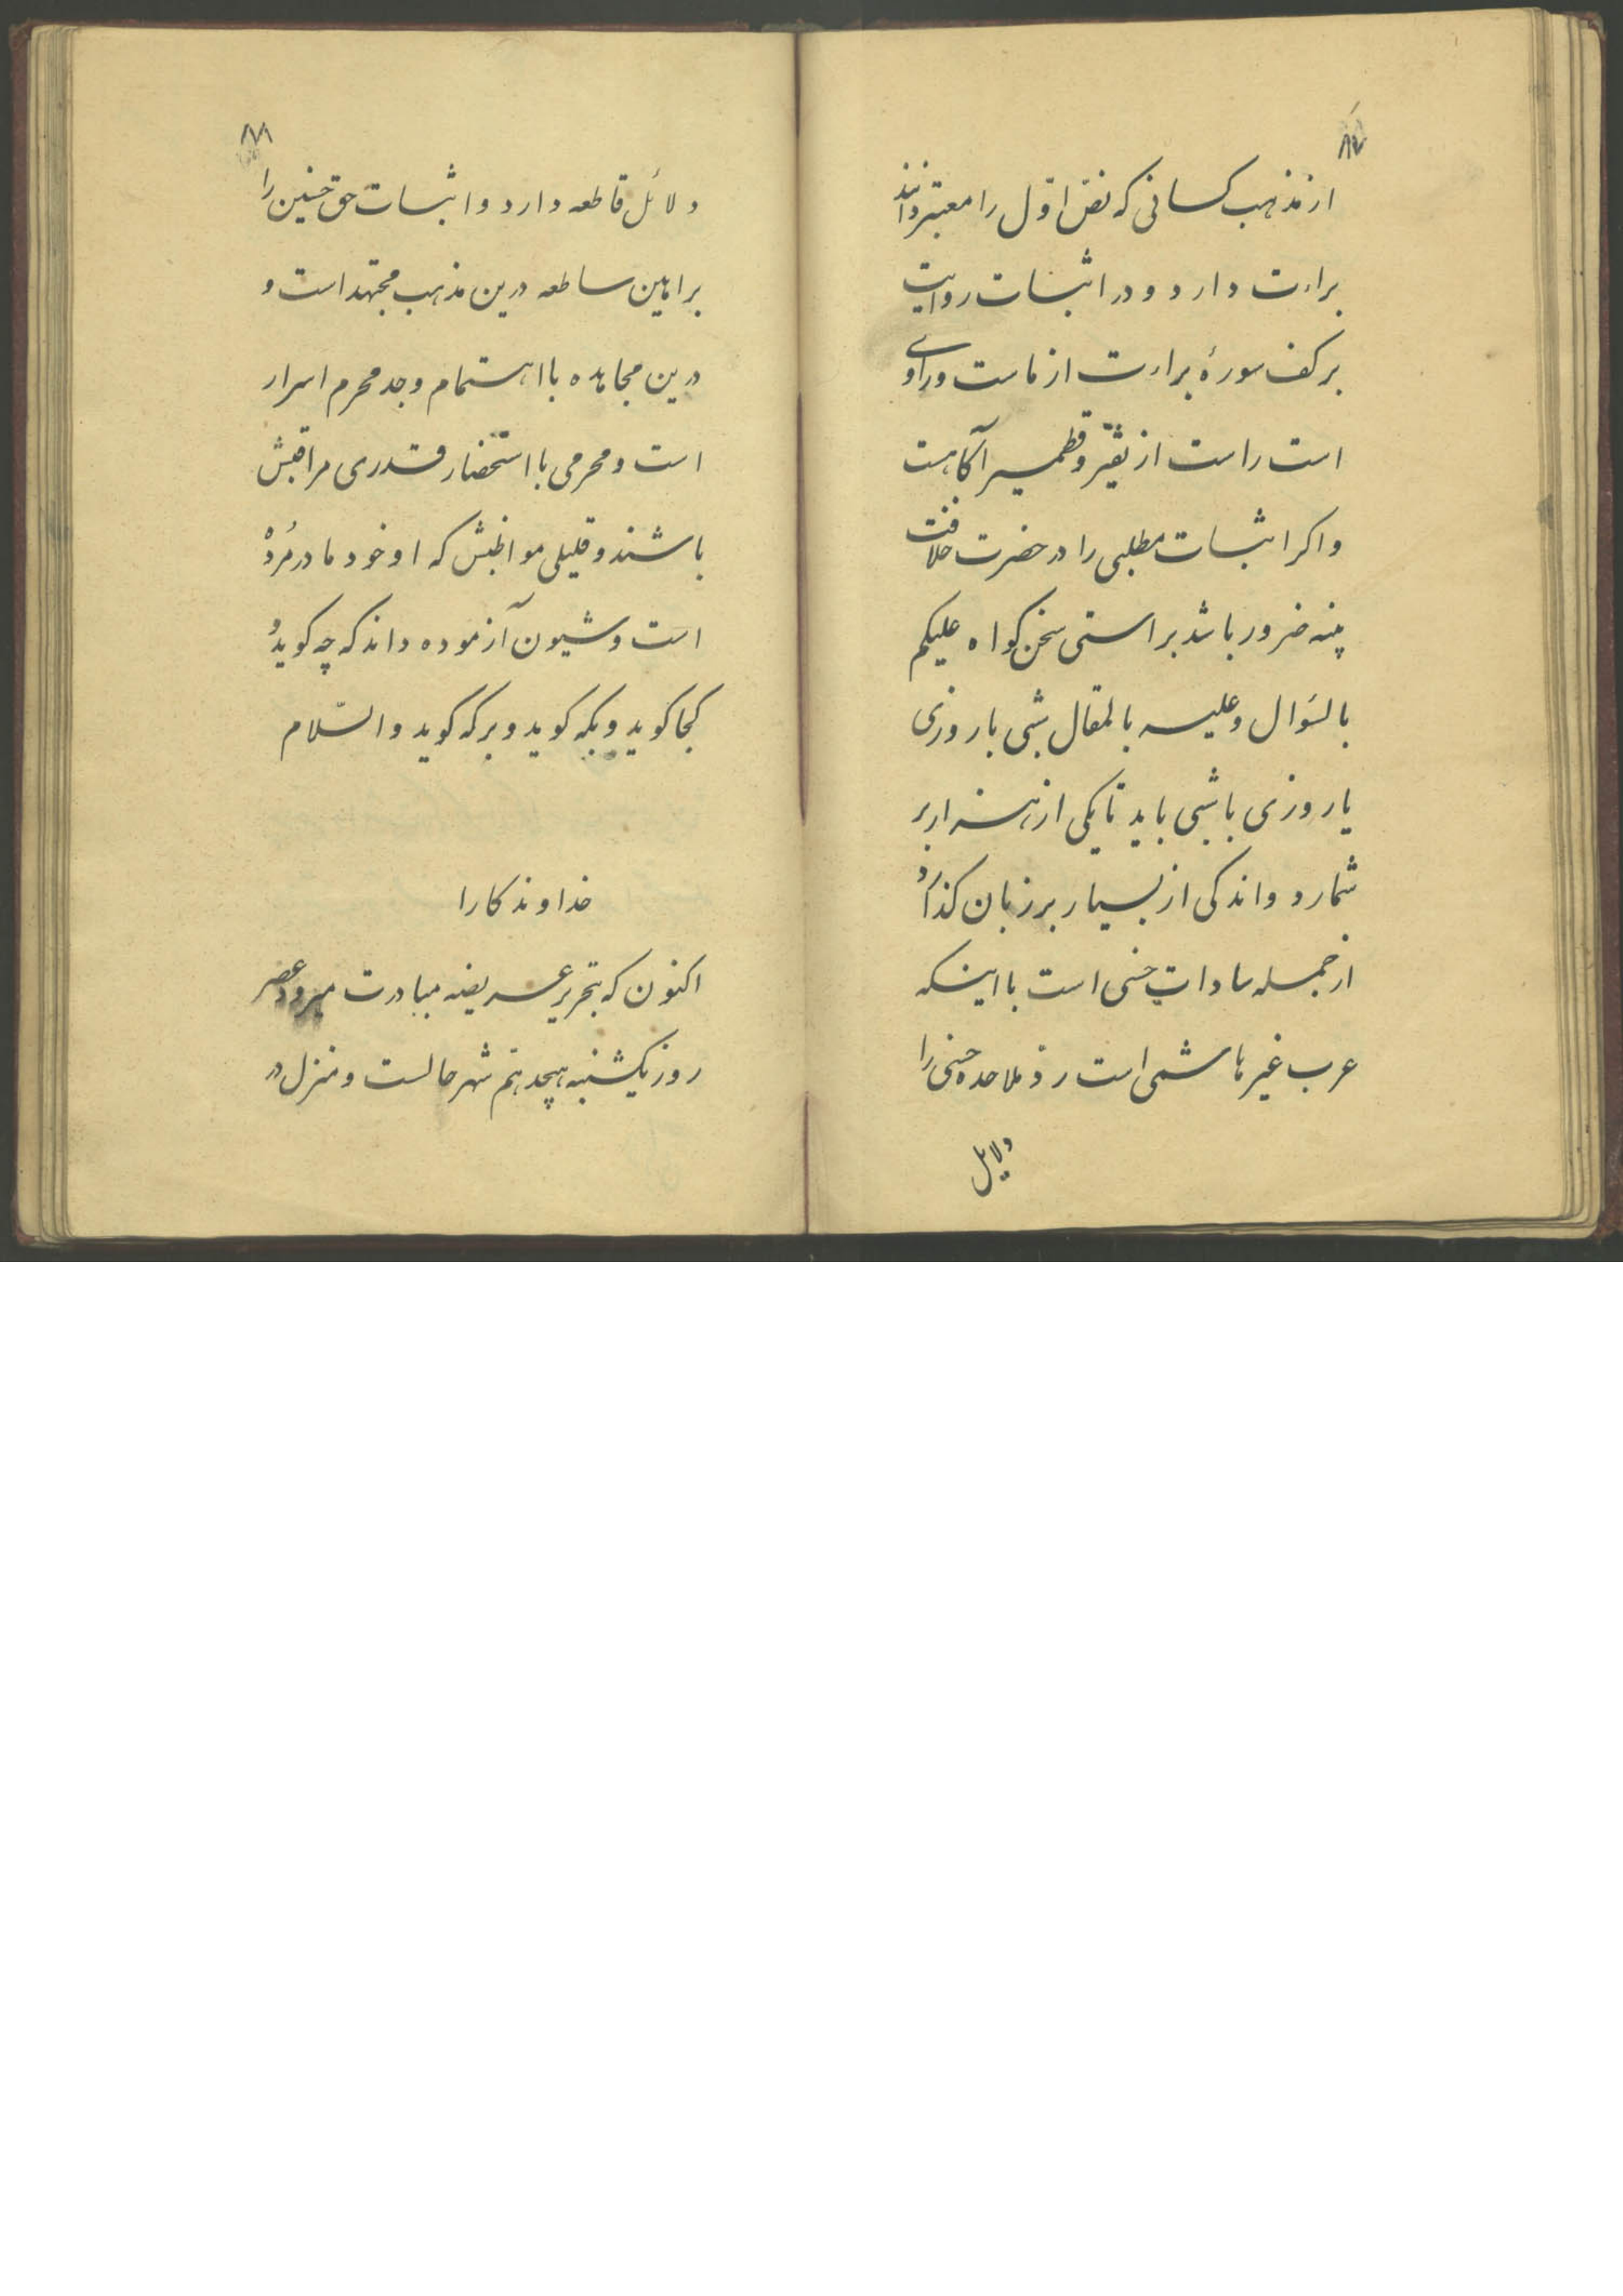 ۸۷
از مذهب کسانی که نصّ اوّل را معتبر دانند
براءت دارد و در اثبات روایت
بر کف سورهٔ براءت از ماست و راوی
است راست از نقیر و قطمیر آکاهست
و اکر اثبات مطلبی را در حضرت خلافت
بینه ضرور باشد بر راستی سخن کواه علیکم
بالسّوال و علیه بالمقال شبی با روزی
یا روزی با شبی باید تا یکی از هزار بر
شمارد و اندکی از بسیار بر زبان کذارد
از جمله سادات حسنی است با اینکه
عرب غیر هاشمی است رد ملاحده حسنی را
دلایل
۸۸
دلائل قاطعه دارد و اثبات حق حسنین را
براهین ساطعه درین مذهب مجتهد است و
درین مجاهده با اهتمام وجد محرم اسرار
است و محرمی با استحضار قدری مراقبش
باشند و قلیلی مواظبش که او خود مادر مرده
است و شیون آزموده داند که چه کوید و
کجا کوید و بکه کوید و بر که کوید والسّلام
خداوندکارا
اکنون که بتحریر عریضه مبادرت میرود عصر
روز یکشنبه هیجدهم شهر حالست و منزل در